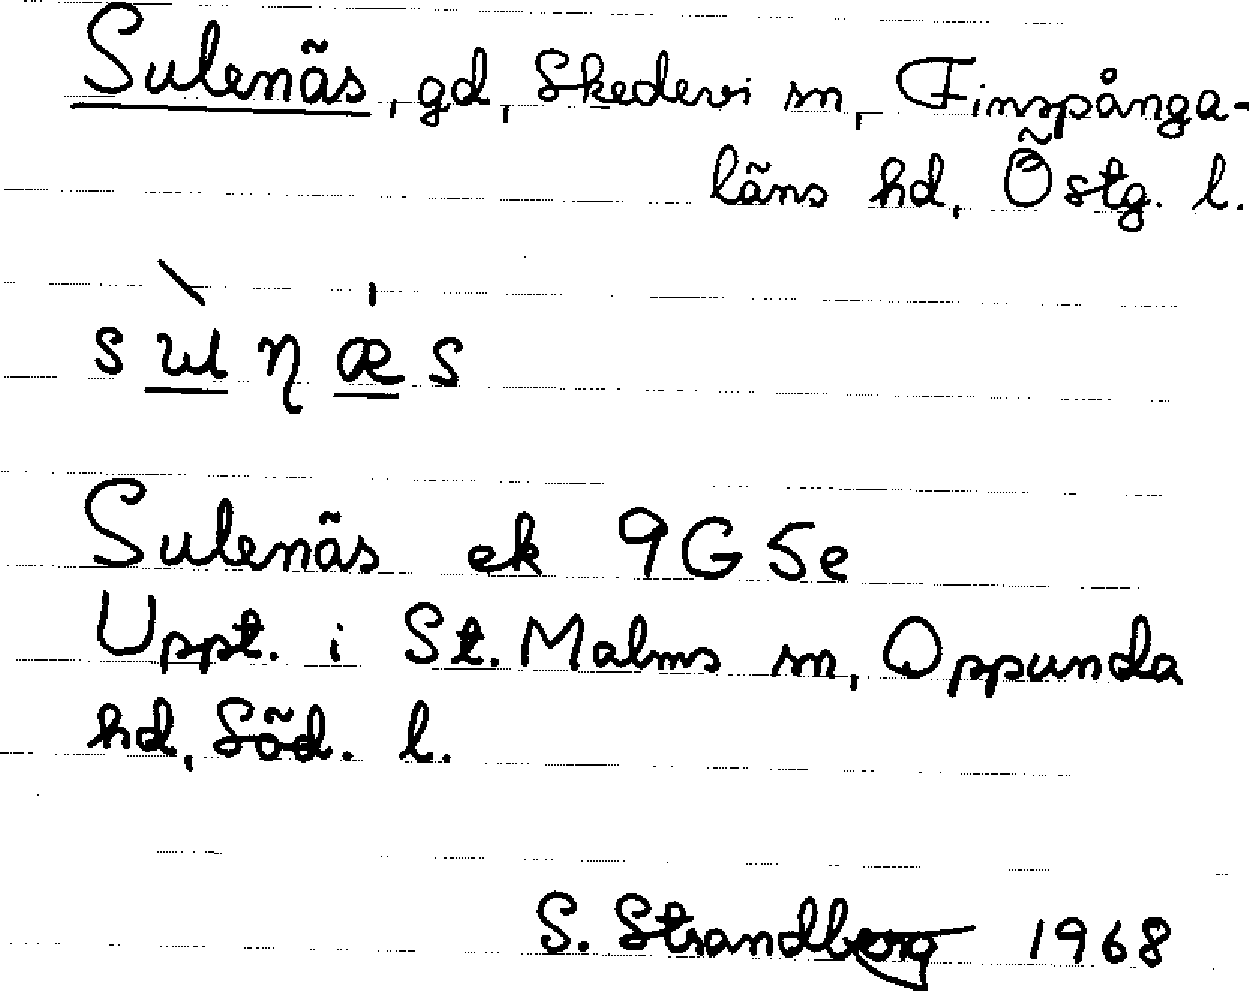 Sulenäs, gd, Skedevi sn, Finspånga-
läns hd, Östg. l.
s ɯ̀ η æ s
Sulenäs ek 9G5e
Uppt. i St. Malms sn, Oppunda
hd, Söd. l.
S. Strandberg 1968